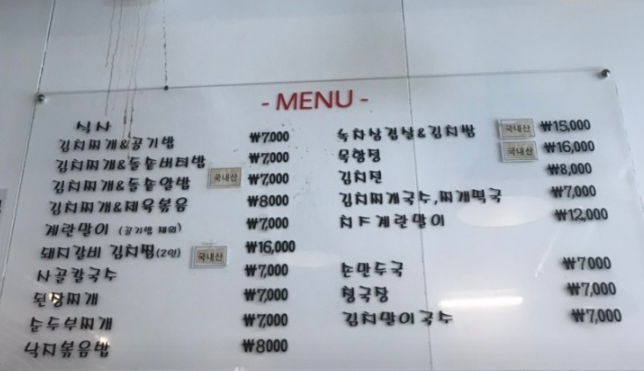 - MENU -
식사
김치찌개&공기밥 ₩7,000
김치찌개&돌솥버터밥 ₩7,000
김치찌개&돌솥알밥 국내산 ₩7,000
김치찌개&제육볶음 ₩8000
계란말이 (공기밥 제외) ₩7,000
돼지갈비 김치찜(2인) 국내산 ₩16,000
사골칼국수 ₩7,000
된장찌개 ₩7,000
순두부찌개 ₩7,000
낙지볶음밥 ₩8000
녹차삼겹살&김치쌈 국내산 ₩15,000
목항정 국내산 ₩16,000
김치전 ₩8,000
김치찌개국수,찌개떡국 ₩7,000
치즈계란말이 ₩12,000
손만두국 ₩7000
청국장 ₩7,000
김치말이국수 ₩7,000